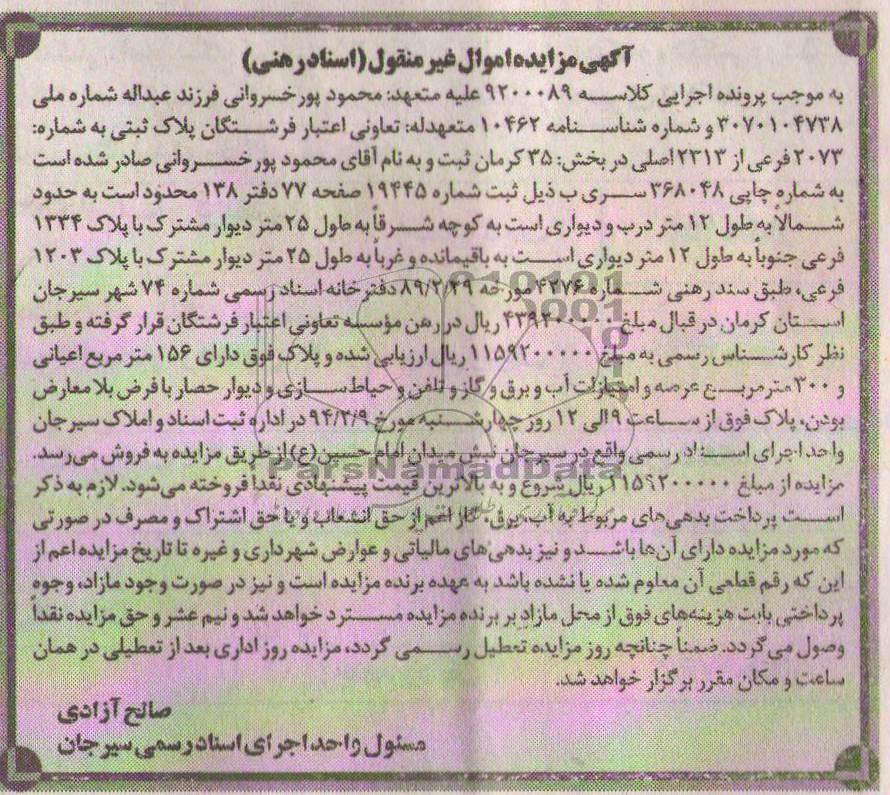 آگهی مزایده اموال غیر منقول (اسناد رهنی)
به موجب پرونده اجرایی کلاسه ۹۲۰۰۰۸۹ علیه متعهد: محمود پورخسروانی فرزند عبداله شماره ملی
۳۰۷۰۱۰۴۷۳۸ و شماره شناسنامه ۱۰۴۶۲ متعهدله: تعاونی اعتبار فرشتگان پلاک ثبتی به شماره:
۲۰۷۳ فرعی از ۲۳۱۳ اصلی در بخش: ۳۵ کرمان ثبت و به نام آقای محمود پورخسروانی صادر شده است
به شماره چاپی ۳۶۸۰۴۸ سری ب ذیل ثبت شماره ۱۹۴۴۵ صفحه ۷۷ دفتر ۱۳۸ محدود است به حدود
شمالاً به طول ۱۲ متر درب و دیواری است به کوچه شرقاً به طول ۲۵ متر دیوار مشترک با پلاک ۱۳۳۴
فرعی جنوباً به طول ۱۲ متر دیواری است به باقیمانده و غرباً به طول ۲۵ متر دیوار مشترک با پلاک ۱۲۰۳
فرعی، طبق سند رهنی شماره ۴۲۷۶۰ مورخه ۸۹/۲/۲۹ دفترخانه اسناد رسمی شماره ۷۴ شهر سیرجان
استان کرمان در قبال مبلغ ریال در رهن مؤسسه تعاونی اعتبار فرشتگان قرار گرفته و طبق
نظر کارشناس رسمی به مبلغ ۱۱۵۹۲۰۰۰۰۰ ریال ارزیابی شده و پلاک فوق دارای ۱۵۶ متر مربع اعیانی
و ۳۰۰ متر مربع عرصه و امتیازات آب و برق و گاز و تلفن و حیاط سازی و دیوار حصار با فرض بلامعارض
بودن، پلاک فوق از ساعت ۹ الی ۱۲ روز چهارشنبه مورخ ۹۴/۲/۹ در اداره ثبت اسناد و املاک سیرجان
واحد اجرای اسناد رسمی واقع در سیرجان نبش میدان امام حسین(ع) از طریق مزایده به فروش می‌رسد.
مزایده از مبلغ ۱۱۵۹۲۰۰۰۰۰ ریال شروع و به بالاترین قیمت پیشنهادی نقداً فروخته می‌شود. لازم به ذکر
است پرداخت بدهی‌های مربوط به آب، برق، گاز اعم از حق انشعاب و یا حق اشتراک و مصرف در صورتی
که مورد مزایده دارای آن‌ها باشد و نیز بدهی‌های مالیاتی و عوارض شهرداری و غیره تا تاریخ مزایده اعم از
این که رقم قطعی آن معلوم شده یا نشده باشد به عهده برنده مزایده است و نیز در صورت وجود مازاد، وجوه
پرداختی بابت هزینه‌های فوق از محل مازاد بر برنده مزایده مسترد خواهد شد و نیم عشر و حق مزایده نقداً
وصول می‌گردد. ضمناً چنانچه روز مزایده تعطیل رسمی گردد، مزایده روز اداری بعد از تعطیلی در همان
ساعت و مکان مقرر برگزار خواهد شد.
صالح آزادی
مسئول واحد اجرای اسناد رسمی سیرجان
ParsNamadData